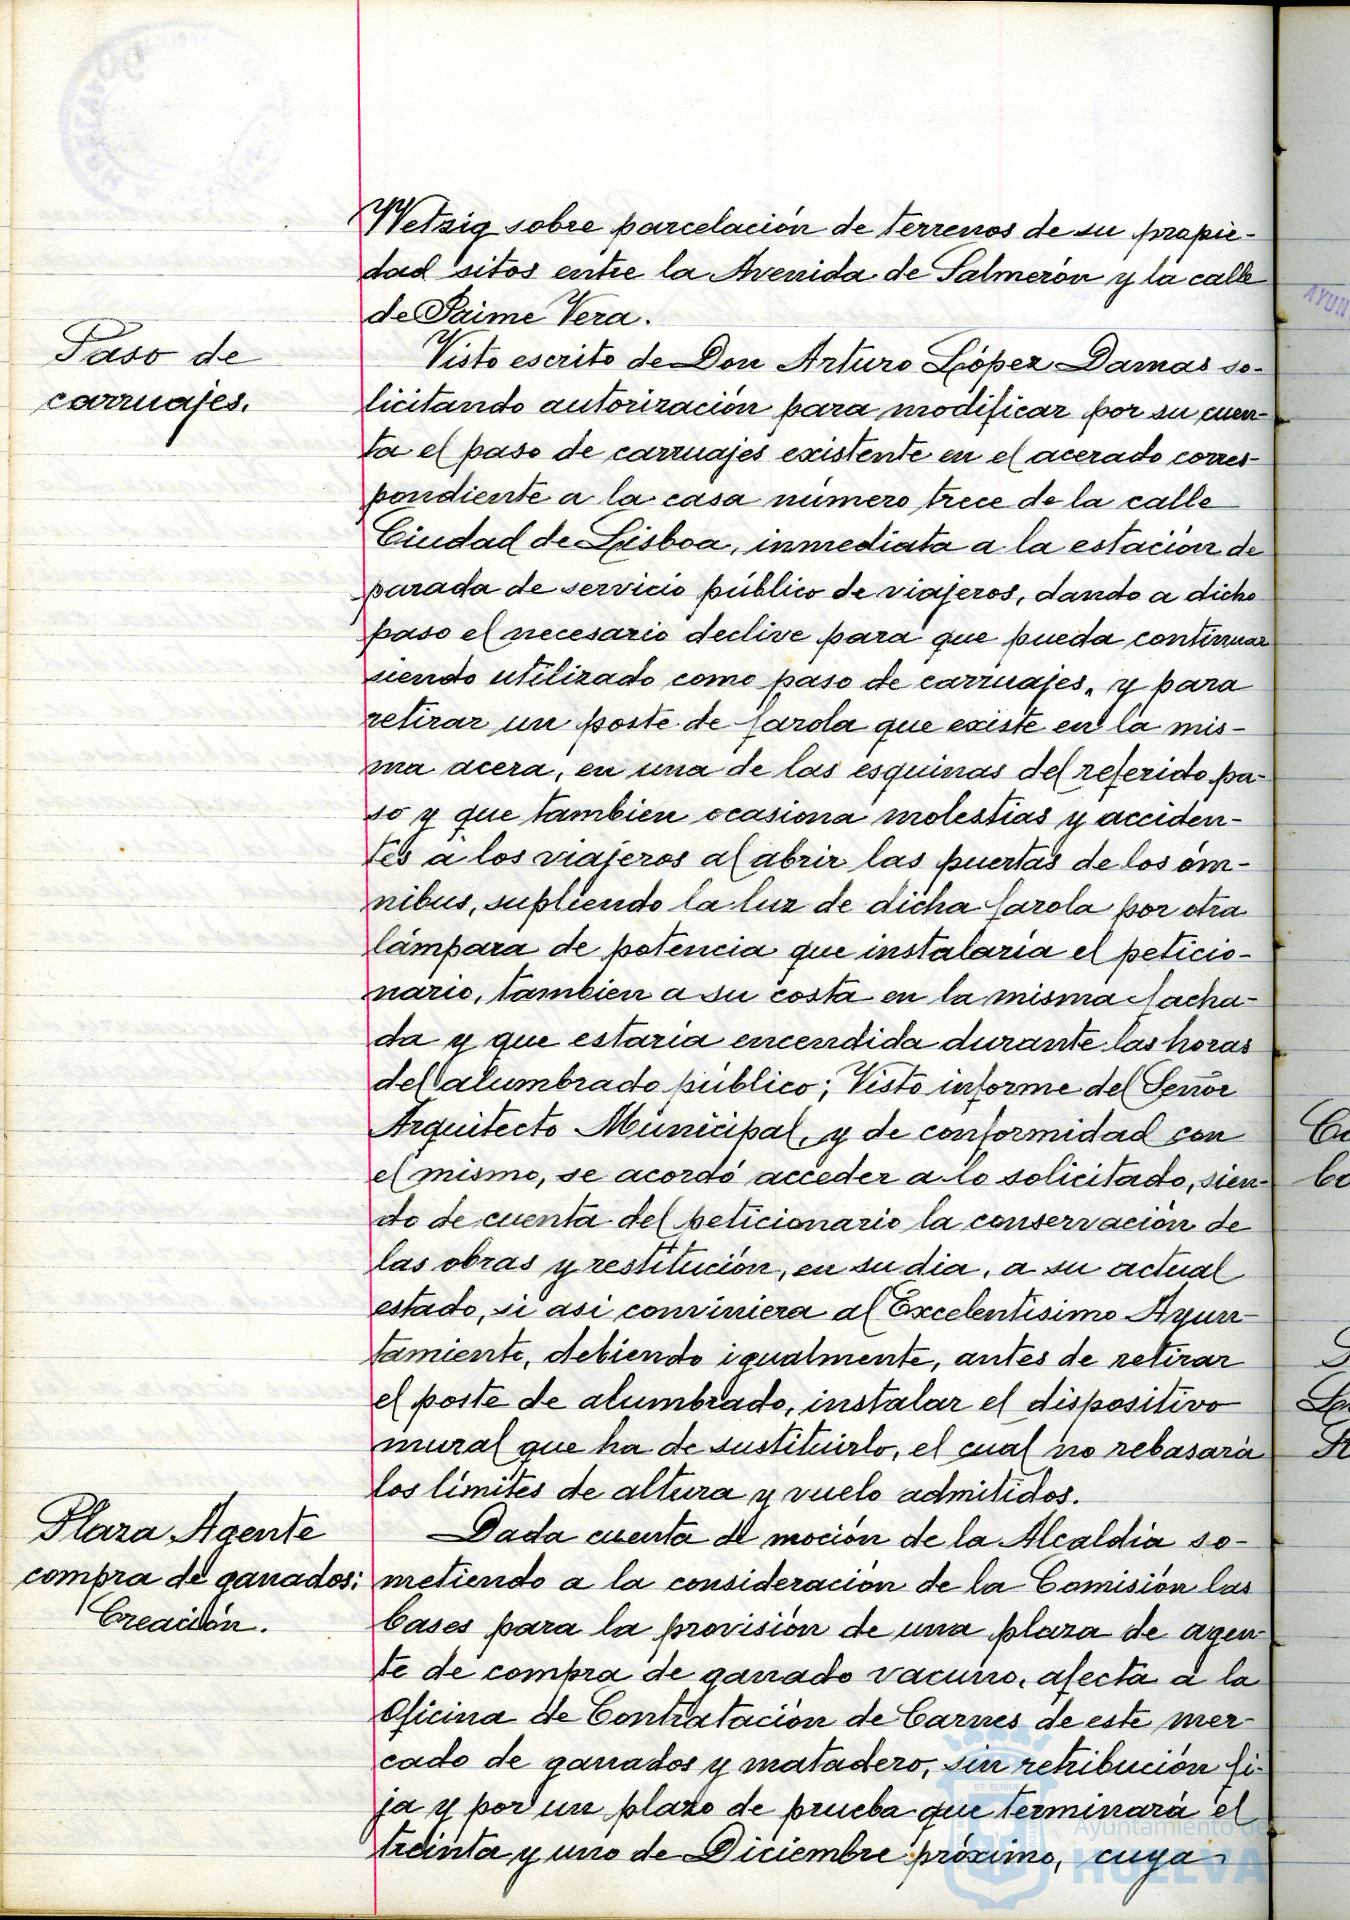 Wetzig sobre parcelación de terrenos de su propie-
dad sitos entre la Avenida de Salmerón y la calle
de Jaime Vera.
Paso de
carruajes.
Visto escrito de Don Arturo López Damas so-
licitando autorización para modificar por su cuen-
ta el paso de carruajes existente en el acerado corres-
pondiente a la casa número trece de la calle
Ciudad de Lisboa, inmediata a la estación de
parada de servicio público de viajeros, dando a dicho
paso el necesario declive para que pueda continuar
siendo utilizado como paso de carruajes, y para
retirar un poste de farola que existe en la mis-
ma acera, en una de las esquinas del referido pa-
so y que tambien ocasiona molestias y acciden-
tes a los viajeros al abrir las puertas de los óm-
nibus, supliendo la luz de dicha farola por otra
lámpara de potencia que instalaría el peticio-
nario, tambien a su costa en la misma facha-
da y que estaría encendida durante las horas
del alumbrado público; Visto informe del Señor
Arquitecto Municipal, y de conformidad con
el mismo, se acordó acceder a lo solicitado, sien-
do de cuenta del peticionario la conservación de
las obras y restitución, en su dia, a su actual
estado, si asi conviniera al Excelentisimo Ayun-
tamiento, debiendo igualmente, antes de retirar
el poste de alumbrado, instalar el dispositivo
mural que ha de sustituirlo, el cual no rebasará
los límites de altura y vuelo admitidos.
Plaza Agente
compra de ganados:
Creación.
Dada cuenta de moción de la Alcaldía so-
metiendo a la consideración de la Comisión las
bases para la provisión de una plaza de agen-
te de compra de ganado vacuno, afecta a la
Oficina de Contratación de Carnes de este mer-
cado de ganados y matadero, sin retribución fi-
ja y por un plazo de prueba que terminará el
treinta y uno de Diciembre próximo, cuya
Ayuntamiento de
HUELVA